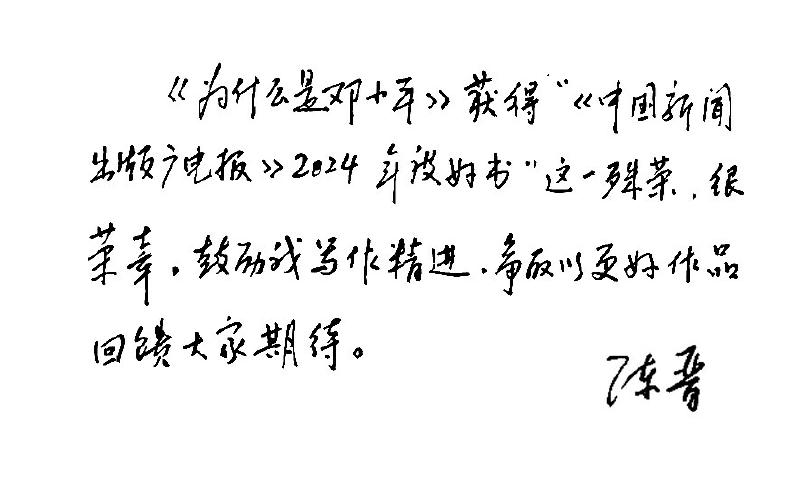 《为什么是邓小平》获得“《中国新闻
出版广电报》2024年度好书”这一殊荣，很
荣幸。鼓励我写作精进，争取以更好作品
回馈大家期待。
陈晋